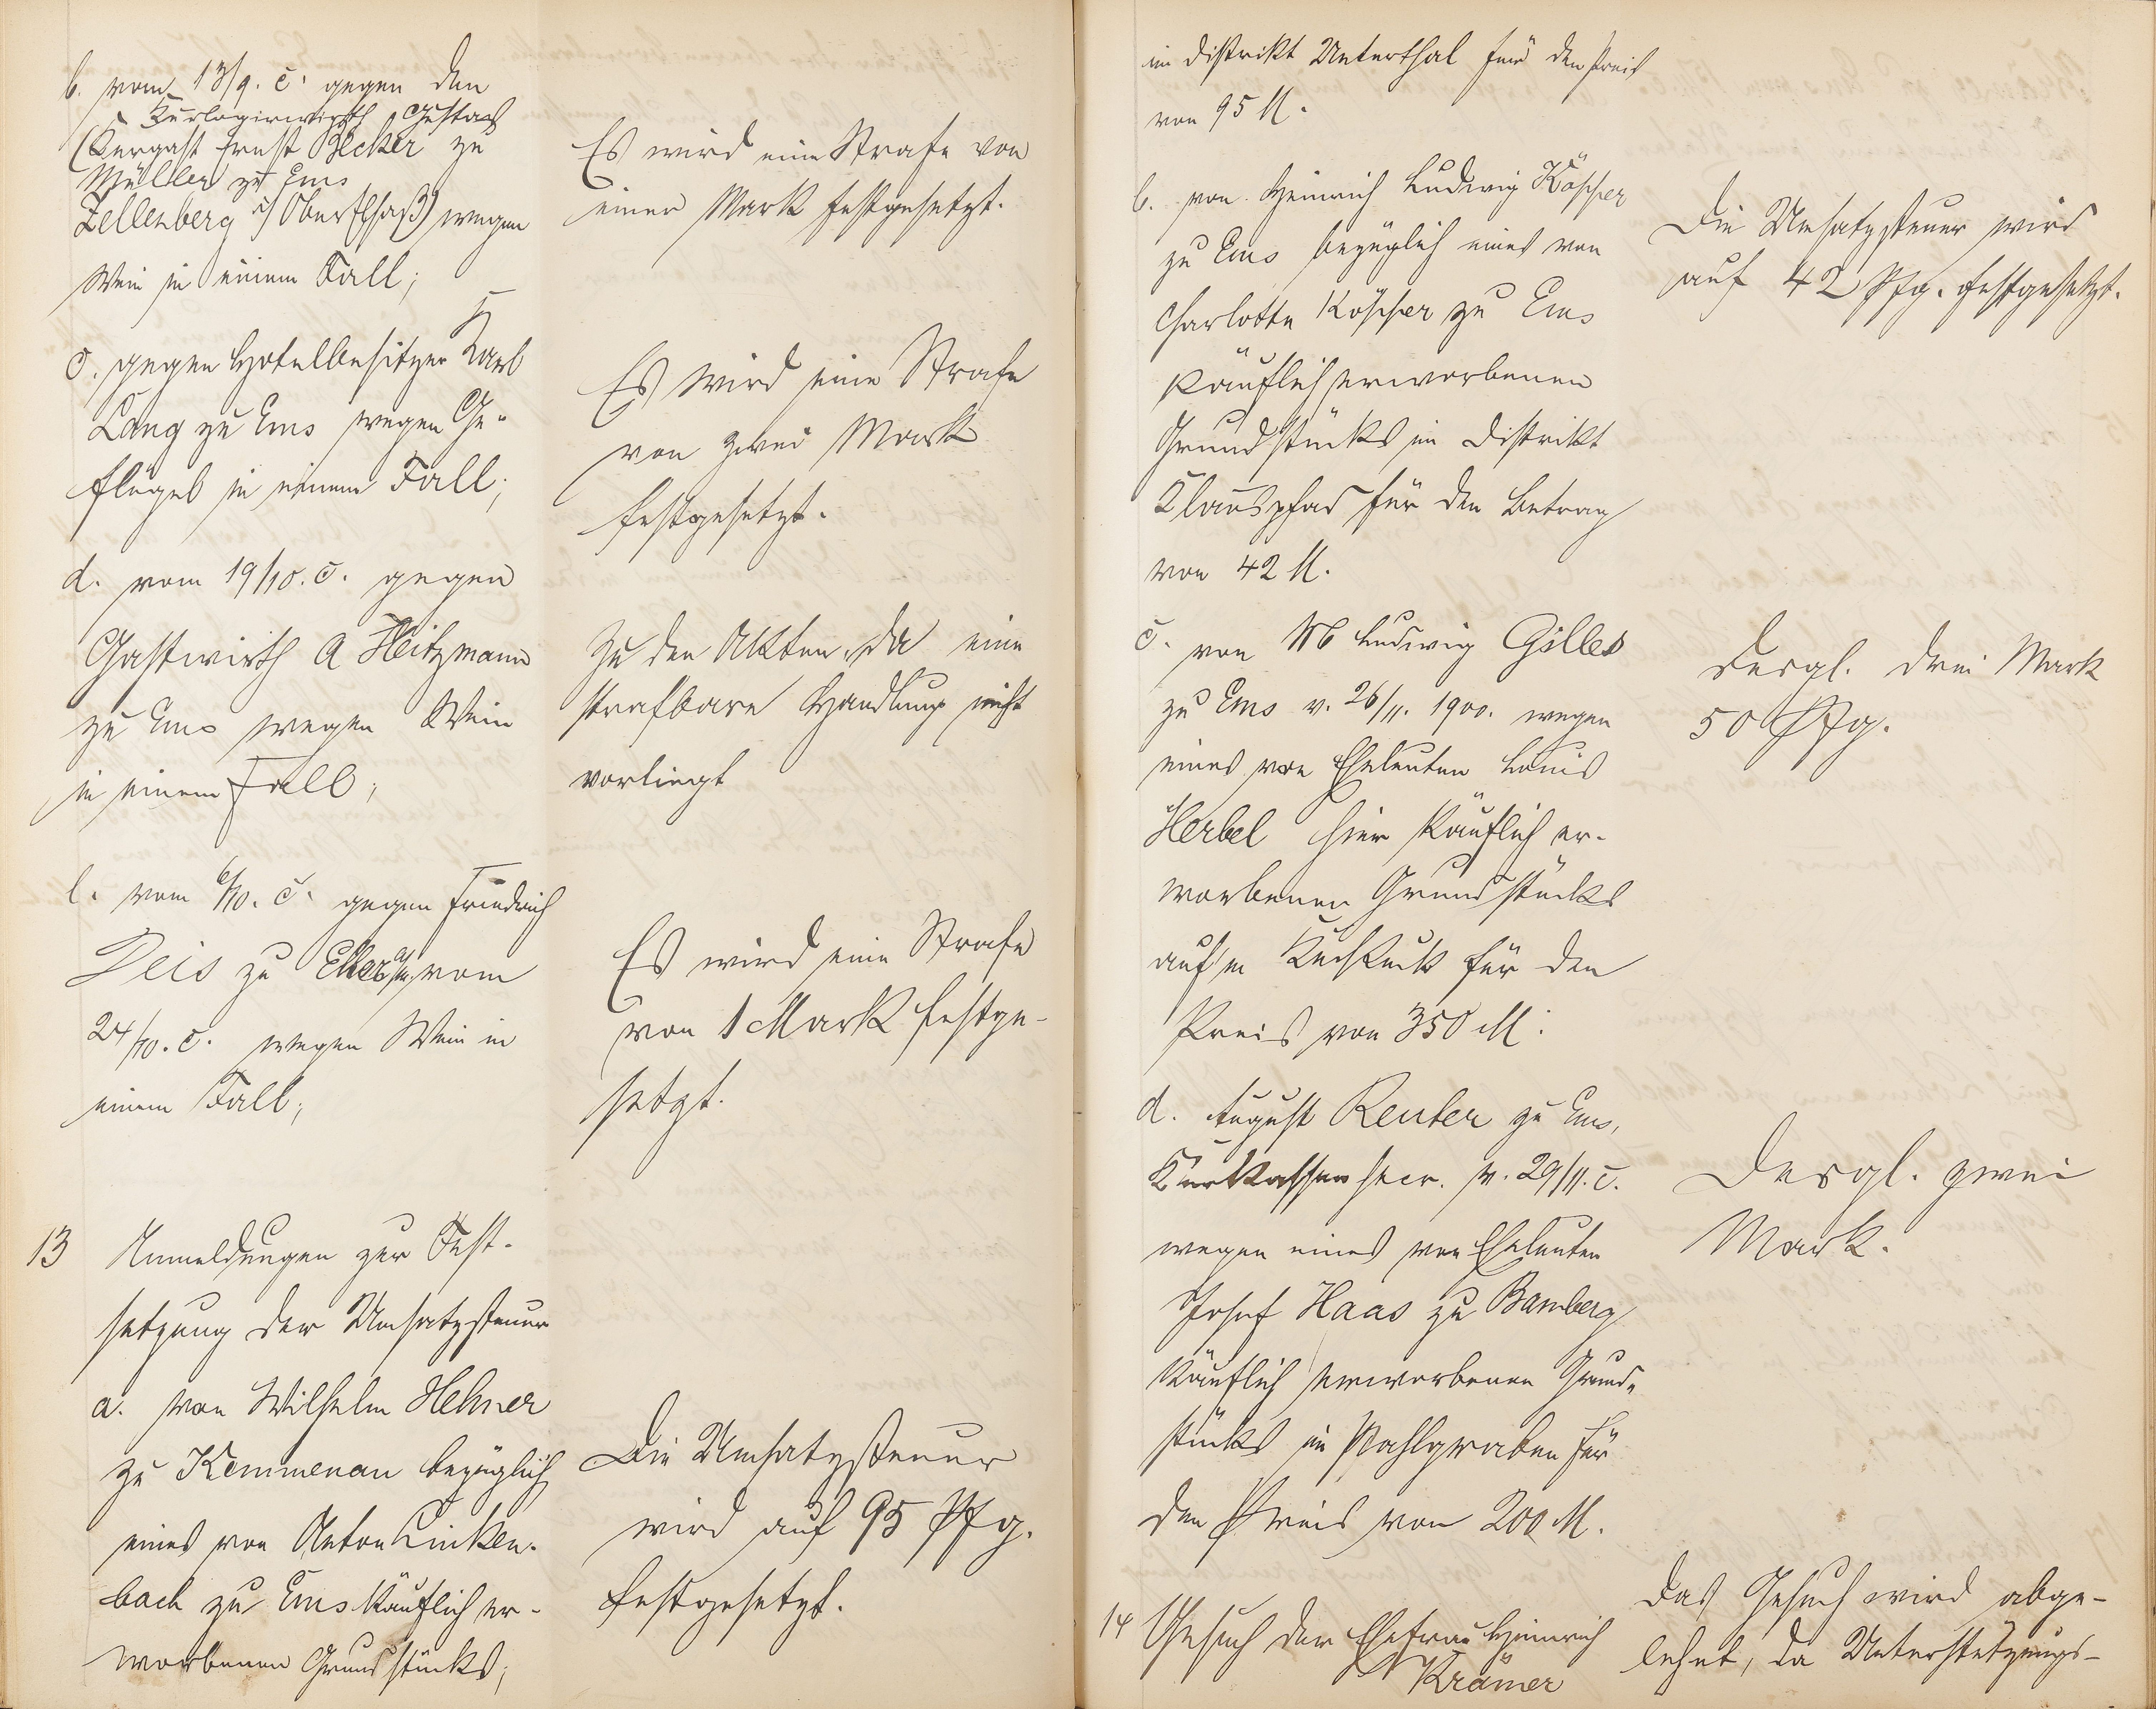 b. vom 13/9. c. gegen den
Kurlogirwirth Gustav
(Kurgast Ernst Becker zu
Müller zu Ems
Zellenberg i/ Ober Elsaß) wegen
Wein in einem Fall;
Es wird eine Strafe von
einer Mark festgesetzt.
c. gegen Hotelbesitzer Karl
Lang zu Ems wegen Ge-
flügel in einem Fall;
Es wird eine Strafe
von zwei Mark
festgesetzt.
d. vom 19/10. c. gegen
Gastwirth A Heitzmann
zu Ems wegen Wein
in einem Fall;
Zu den Akten, da eine
strafbare Handlung nicht
vorliegt
e. vom 6/10. c. gegen Friedrich
Deis zu Eller a/M. vom
24/10. c. wegen Wein in
einem Fall;
Es wird eine Strafe
von 1 Mark festge-
setzt.
13 Anmeldungen zur Fest-
setzung der Umsatzsteuer
a. von Wilhelm Hehner
zu Kemmenau bezüglich
eines von Anton Linken-
bach zu Ems käuflich er-
worbenen Grundstücks;
Die Umsatzsteuer
wird auf 95 Pfg.
festgesetzt.
im Distrikt Unterthal für den Preis
von 95 M.
b. von Heinrich Ludwig Köpper
zu Ems bezüglich eines von
Charlotte Köpper zu Ems
käuflich erworbenen
Grundstücks im Distrikt
Klauspfad für den Betrag
von 42 M.
Die Umsatzsteuer wird
auf 42 Pfg. festgesetzt.
c. von Ludwig Gilles
zu Ems v. 26/11. 1900. wegen
eines von Eheleuten Louis
Herbel hier käuflich er-
worbenen Grundstücks
auf'm Kuckuck für den
Preis von 350 M.
Desgl. drei Mark
50 Pfg.
d. August Reuter zu Ems,
Kurkassensecr. v. 29/11. c.
wegen eines von Eheleuten
Josef Haas zu Bamberg
käuflich erworbenen Grund-
stücks im Pfahlgraben für
den Preis von 200 M.
Desgl. zwei
Mark.
14 Gesuch der Ehefrau Heinrich
Krämer
Das Gesuch wird abge-
lehnt, da Unterstützungs-